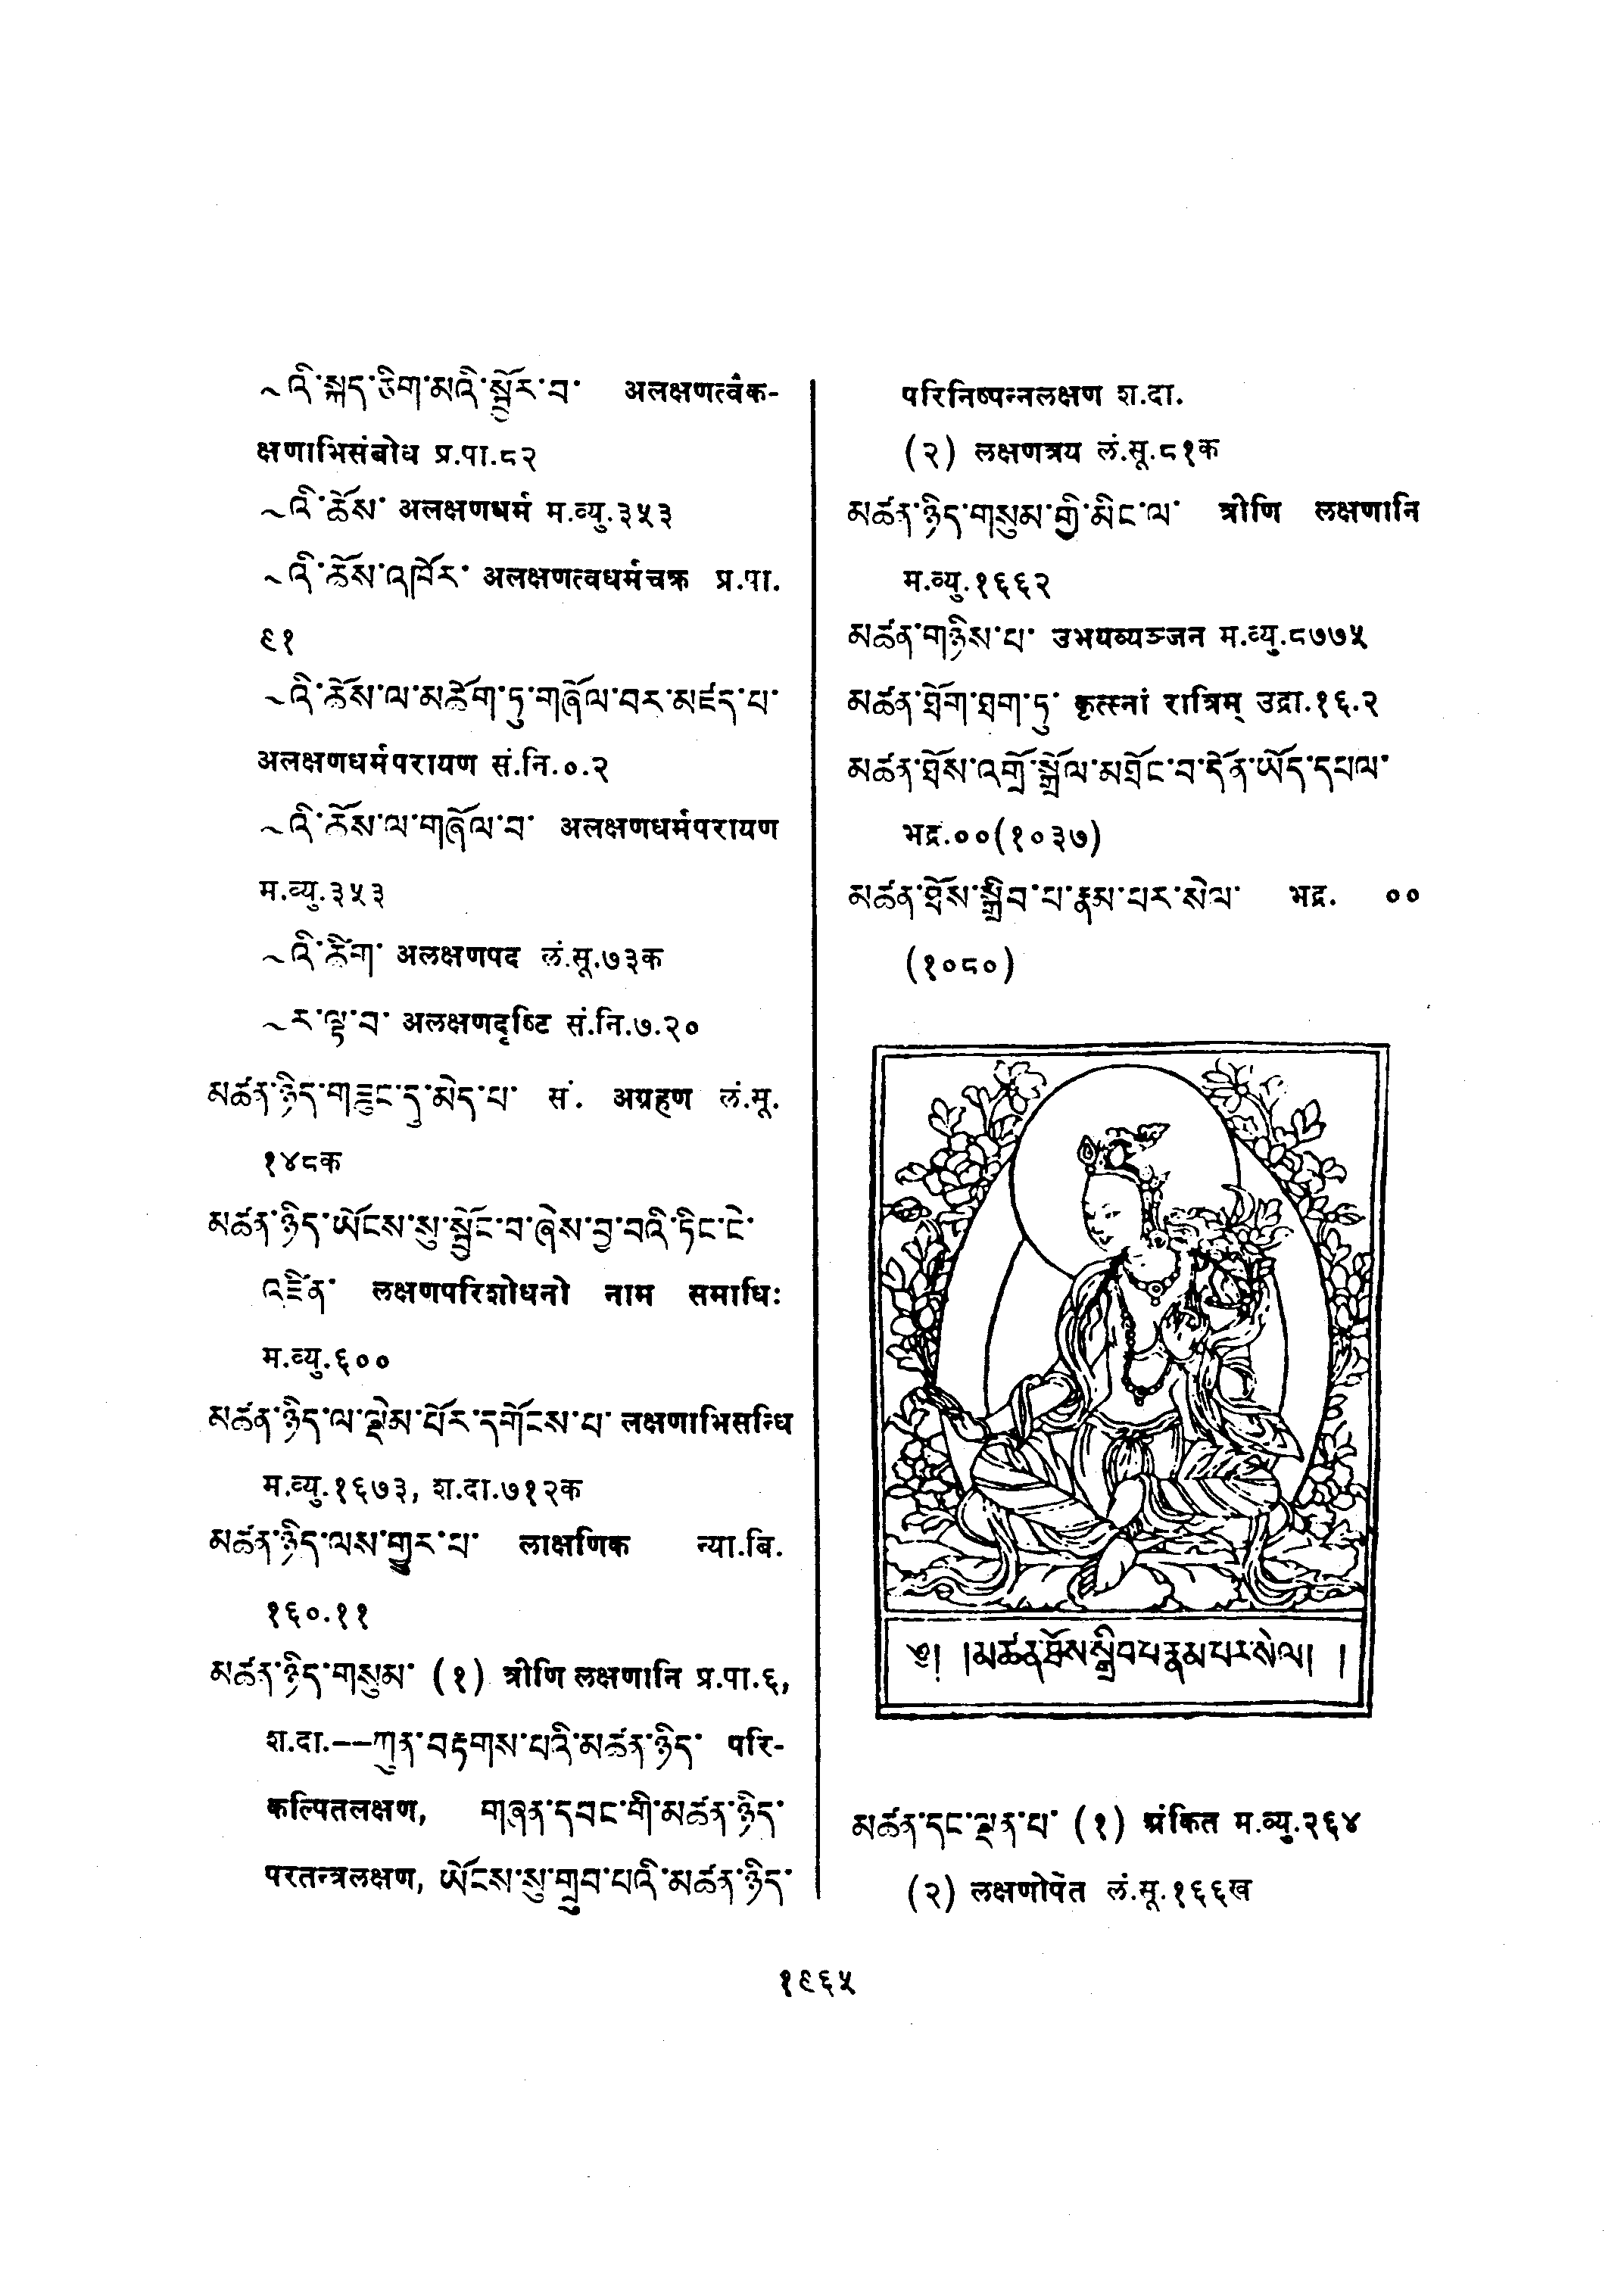 ~འི་སྐད་ཅིག་མའི་སྦྱོར་བ་ अलक्षणत्वैक-
क्षणाभिसंबोध प्र.पा.८२
~འི་ཆོས་ अलक्षणधर्म म.व्यु.३५३
~འི་ཆོས་འཁོར་ अलक्षणत्वधर्मचक्र प्र.पा.
९१
~འི་ཆོས་ལ་མཆོག་ཏུ་གཞོལ་བར་མཛད་པ་
अलक्षणधर्मपरायण सं.नि.०.२
~འི་ཆོས་ལ་གཞོལ་བ་ अलक्षणधर्मपरायण
म.व्यु.३५३
~འི་ཚིག་ अलक्षणपद लं.सू.७३क
~ར་ལྟ་བ་ अलक्षणदृष्टि सं.नि.७.२०
མཚན་ཉིད་གཟུང་དུ་མེད་པ་ सं. अग्रहण लं.सू.
१४८क
མཚན་ཉིད་ཡོངས་སུ་སྦྱོང་བ་ཞེས་བྱ་བའི་ཏིང་ངེ་
འཛིན་ लक्षणपरिशोधनो नाम समाधिः
म.व्यु.६००
མཚན་ཉིད་ལ་ལྡེམ་པོར་དགོངས་པ་ लक्षणाभिसन्धि
म.व्यु.१६७३, श.दा.७१२क
མཚན་ཉིད་ལས་གྱུར་པ་ लाक्षणिक न्या.बि.
१६०.११
མཚན་ཉིད་གསུམ་ (१) त्रीणि लक्षणानि प्र.पा.६,
श.दा.--ཀུན་བརྟགས་པའི་མཚན་ཉིད་ परि-
कल्पितलक्षण, གཞན་དབང་གི་མཚན་ཉིད་
परतन्त्रलक्षण, ཡོངས་སུ་གྲུབ་པའི་མཚན་ཉིད་
परिनिष्पन्नलक्षण श.दा.
(२) लक्षणत्रय लं.सू.८१क
མཚན་ཉིད་གསུམ་གྱི་མིང་ལ་ त्रीणि लक्षणानि
म.व्यु.१६६२
མཚན་གཉིས་པ་ उभयव्यञ्जन म.व्यु.८७७५
མཚན་ཐོག་ཐག་ཏུ་ कृत्स्नां रात्रिम् उद्रा.१६.२
མཚན་ཐོས་འགྲོ་སྒྲོལ་མཐོང་བ་དོན་ཡོད་དཔལ་
भद्र.००(१०३७)
མཚན་ཐོས་སྒྲིབ་པ་རྣམ་པར་སེལ་ भद्र. ००
(१०८०)
༄། །མཚན་ཐོས་སྒྲིབ་པ་རྣམ་པར་སེལ། །
མཚན་དང་ལྡན་པ་ (१) अंकित म.व्यु.२६४
(२) लक्षणोपेत लं.सू.१६६ख
१९६५